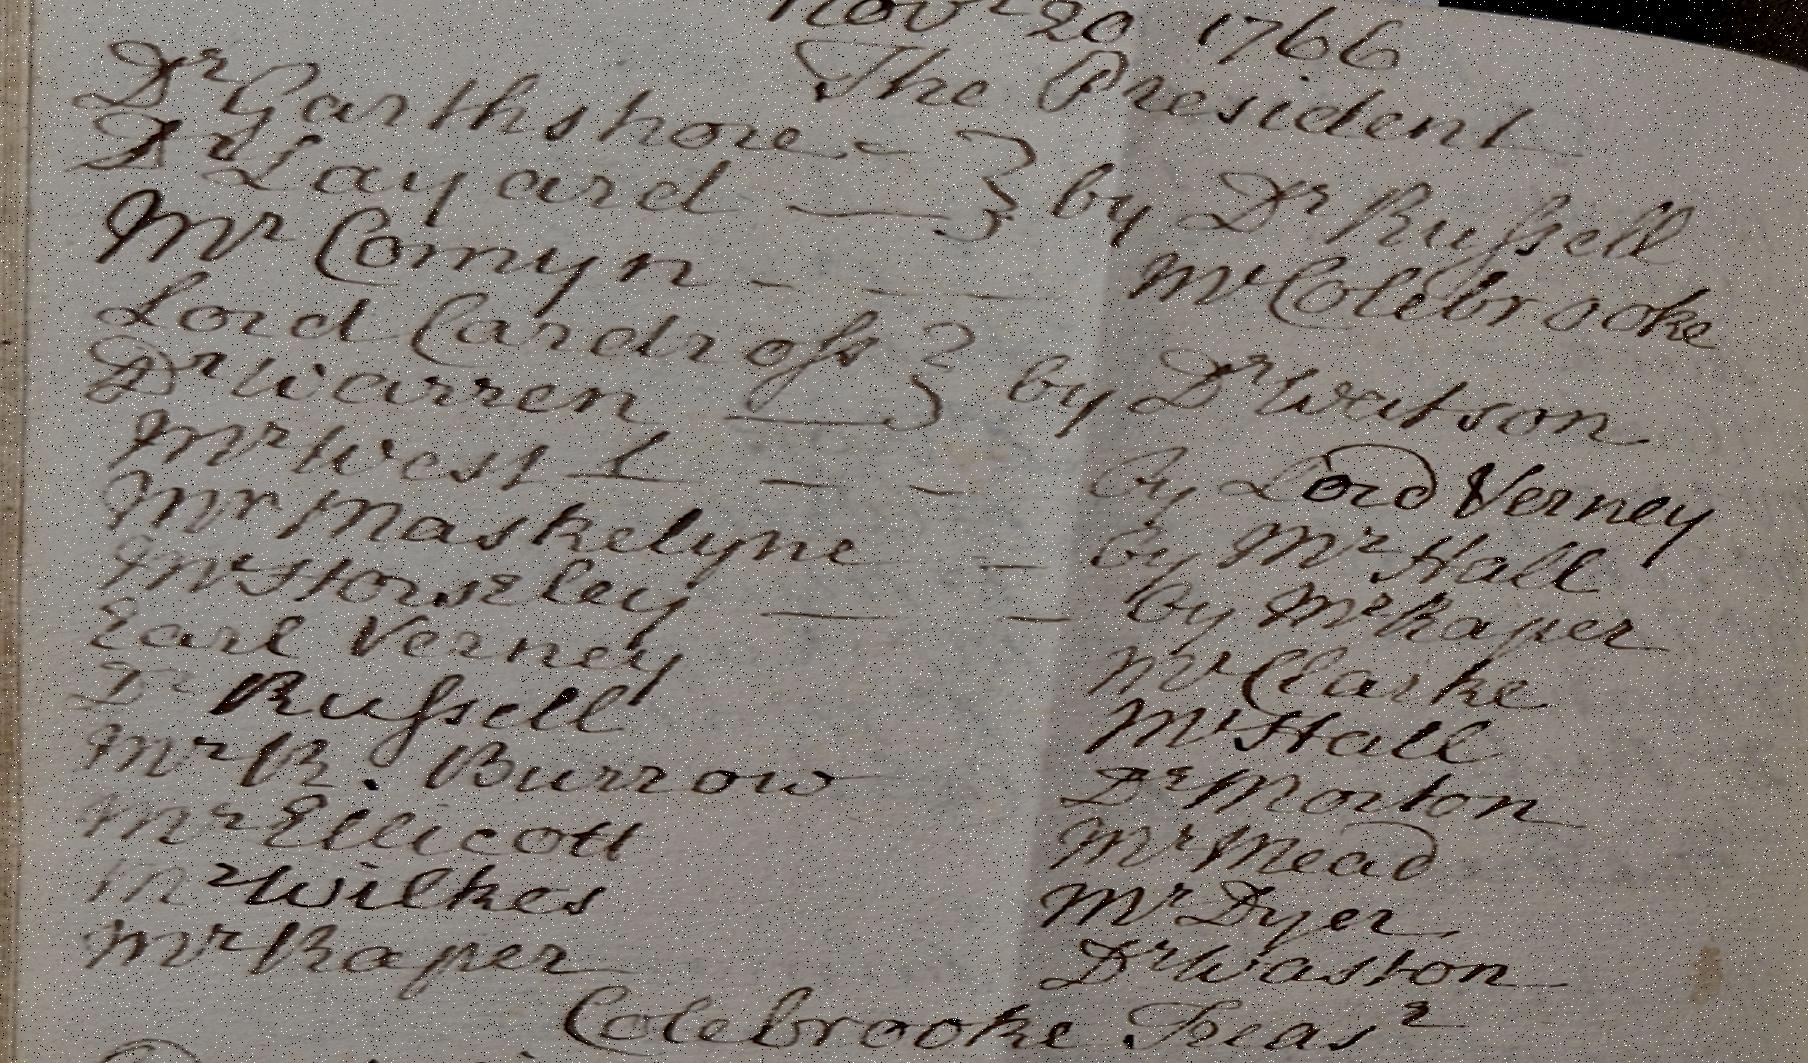 Novr 20 1766
The President
Dr Garthshore - } by Dr Russell
Dr Layard
Mr Comyn - - Mr Colebrooke
Lord Cardross } by Dr Watson
Dr Warren
Mr West - - by Lord Verney
Mr Maskelyne - by Mr Hall
Mr Horseley - - by Mr Raper
Earl Verney Mr Clarke
Dr Russell Mr Hall
Mr R. Burrow Dr Morton
Mr Ellicott Mr Mead
Mr Wilkes Mr Dyer
Mr Raper Dr Waston
Colebrooke Treasr